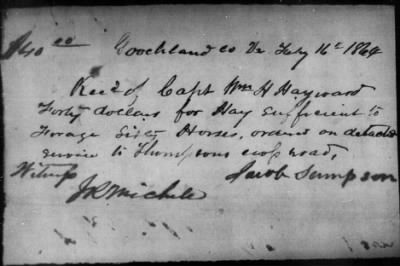 $40.00 Goochland co Va Feby 16th 1864
Recd of Capt Wm H Hayward
Forty dollars for Hay sufficient to
Forage Sixty Horses, ordered on detached
service to Thompsons cross road,
Witness Jacob Sampson
JR Michele